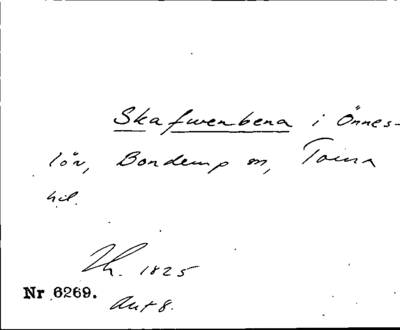 Skafwenbena i Önnes-
löv, Bondemp sn, Torna
hd.
Th. 1825
Nr 6269.
Ant 8.